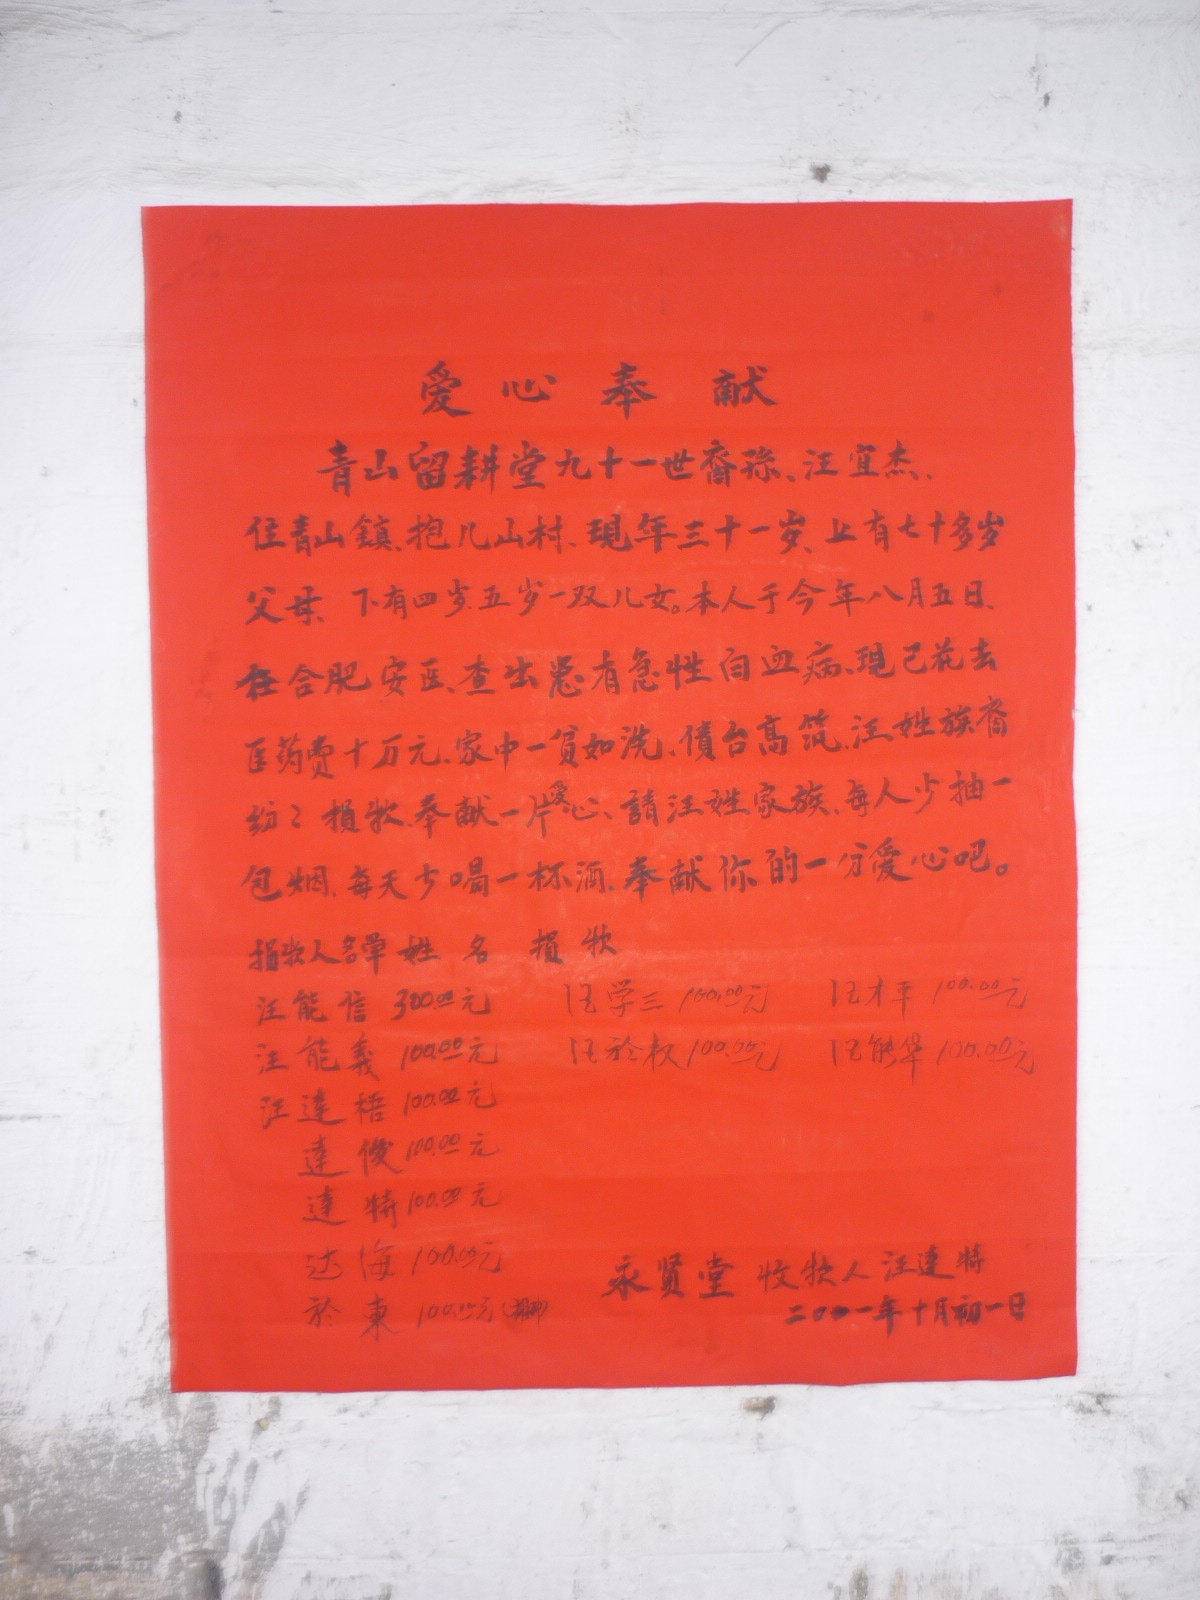 爱心奉献
青山留耕堂九十一世裔孫、汪宜杰、
住青山鎮、抱儿山村、現年三十一岁、上有七十多岁
父母、下有四岁、五岁一双儿女。本人于今年八月五日、
在合肥安医、查出患有急性白血病、現已花去
医药费十万元、家中一貧如洗、債台高筑、汪姓族裔
纷々捐款、奉献一片爱心、請汪姓家族、每人少抽一
包烟、每天少喝一杯酒、奉献你的一分爱心吧。
捐款人名單 姓名 捐款
汪能信 300.00元 汪学三 100.00元 汪才平 100.00元
汪能義 100.00元 汪於权 100.00元 汪能华 100.00元
汪達梧 100.00元
達俊 100.00元
達特 100.00元
达海 100.00元
於東 100.00元
永贤堂 收款人汪達特
年十月初一日